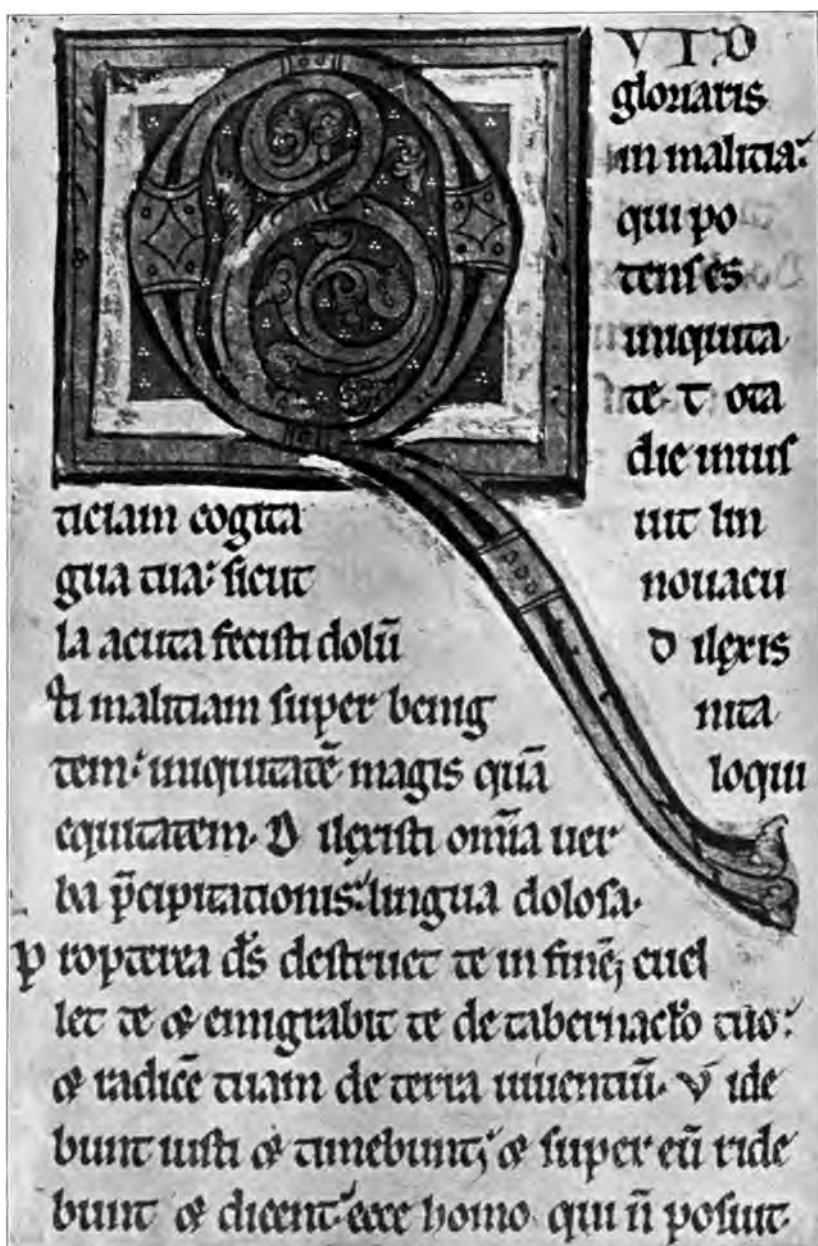 Q VI D
gloriaris
in malitia:
qui po
tens es
iniquita
te. T ota
die inius
ticiam cogita uit lin
gua tua: sicut nouacu
la acuta fecisti dolū D ilexis
ti malitiam super benig nita
tem: iniquitatē magis quā loqui
equitatem. D ilexisti om̄ia uer
ba p̄cipitationis: lingua dolosa.
P ropterea d̄s destruet te in finē; euel
let te & emigrabit te de tabernac̄lo tuo:
& radicē tuam de terra uiuentiū. V ide
bunt iusti & timebunt; & super eū ride
bunt & dicent: ecce homo qui n̄ posuit